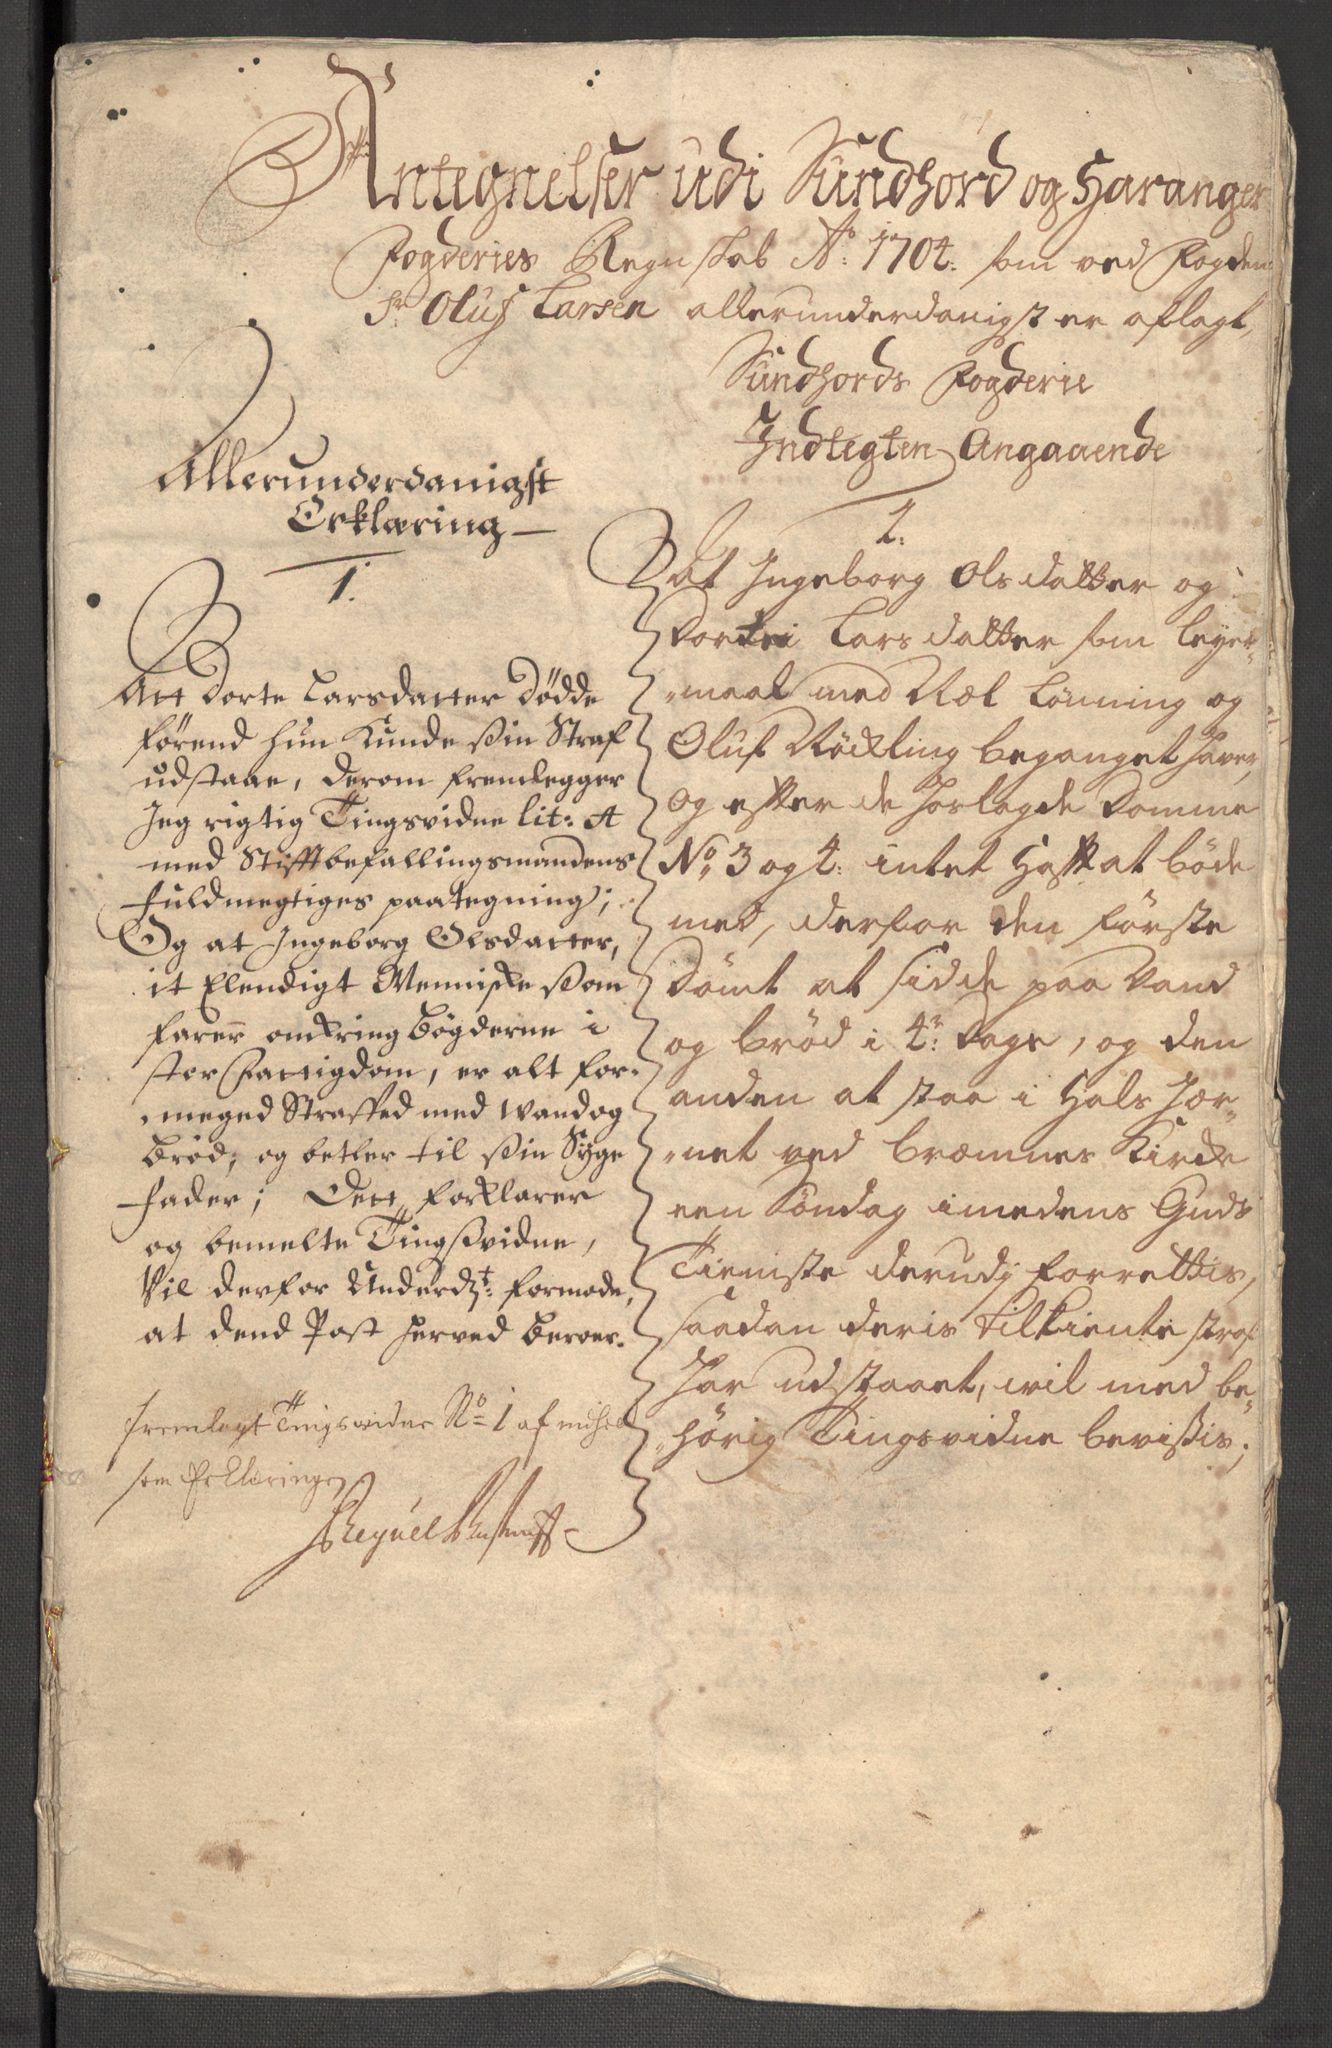 Antegnelser udi Sundhord og Haranger
Fogderies Regnskab Ao: 1704. som ved Fogden
Sr Oluf Larsen allerunderdanigst er aflagt,
Sundhords Fogderie
Indtegten Angaaende
1.
At Ingeborg Olsdatter og
Dortei Larsdatter som leyer-
-maal med Næl Lønning og
Oluf Røckling beganget hafver,
og efter de forlagde Domme
No: 3 og 4: intet hafft at bøde
med, derfor den første
Dømt at sidde paa Vand
og brød i 4r: dage, og den
anden at staa i Hals Jer-
-net ved Bræmnes Kircke
een Søndag imedens Guds
Tieniste derudj forrettis,
saadan deris tilkiente straf
har udstaaet, wil med be-
-hørig Tingsvidne bevisßis;
Allerunderdanigst
Erklæring
1.
Att Dorte Larsdatter Dødde
førend hun Kunde sin Straf
udstaae, derom fremlegger
Jeg rigtig Tingsvidne lit: A
med Stifftbefallingsmandens
fuldmegtiges paategning;
Og at Ingeborg Olsdatter,
it Elendigt Menniske som
farer omkring bøgderne i
stor Fattigdom, er alt for-
-meged Straffed med Wand og
Brød, og betler til sin Syge
fader; Dett forklarer
og bemelte Tingsvidne,
Vil derfor Underdt: formode,
at dend Post herved beroer.
fremlagt Tingsvidne No 1 af
som Erklæringen